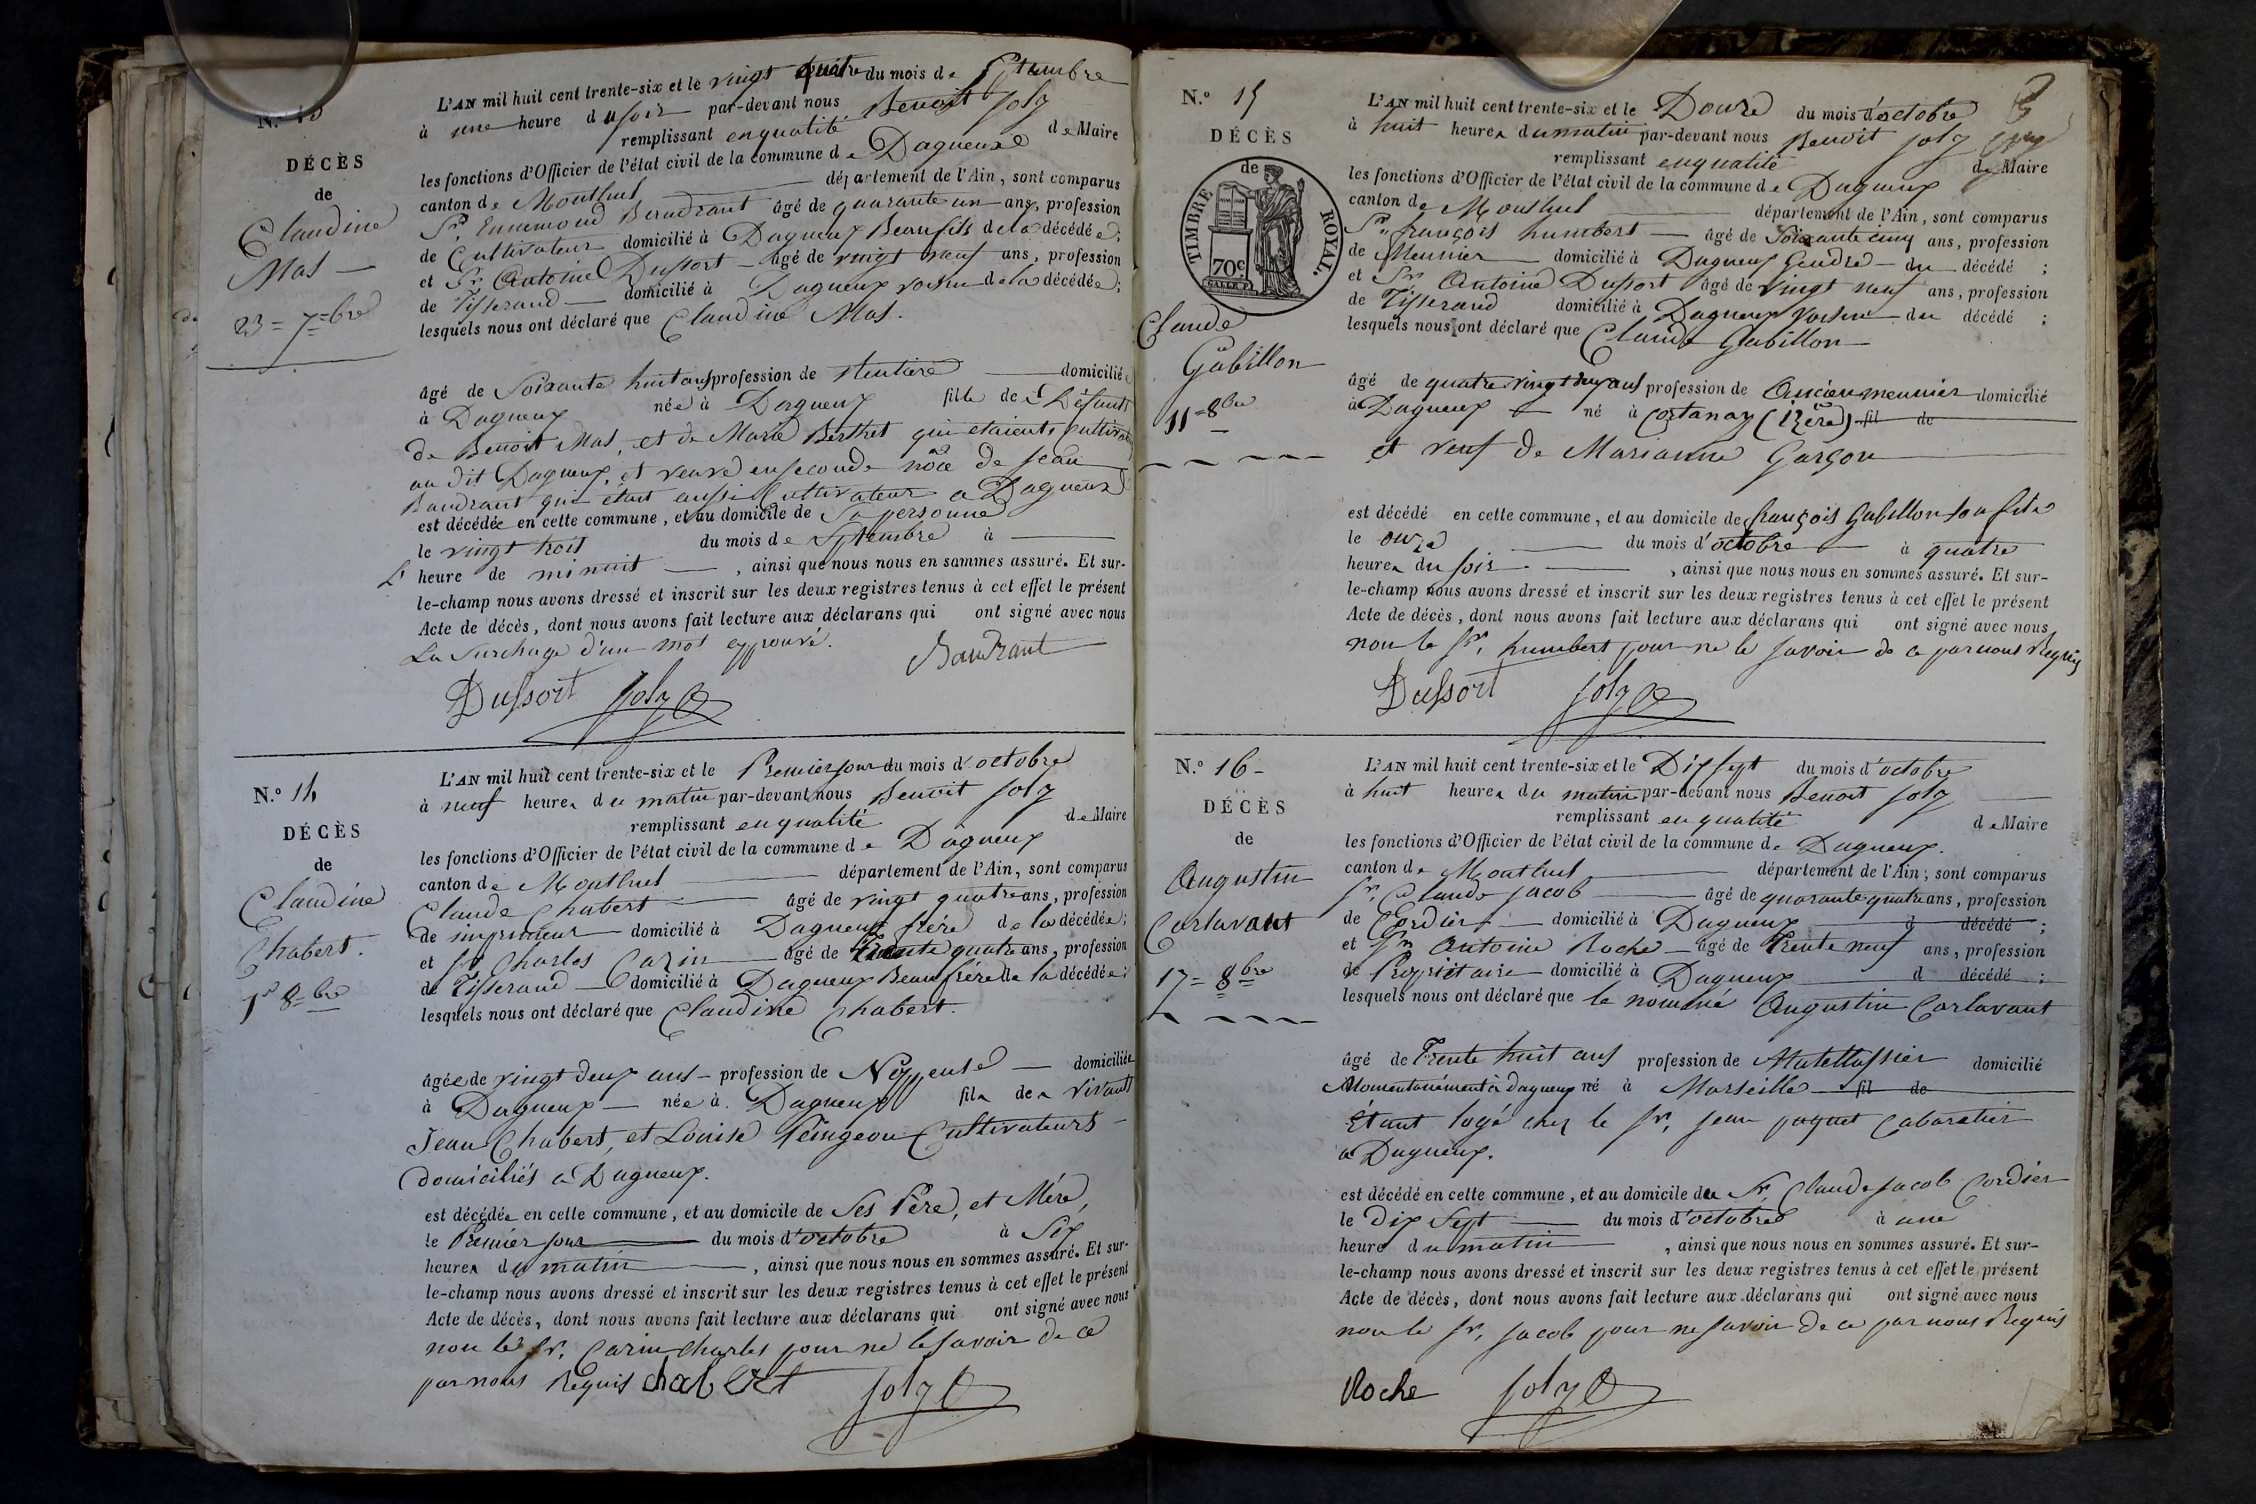 N.º 13
DÉCÈS
de
Claudine
Mas
23 = 7bre
L'AN mil huit cent trente-six et le vingt quatre du mois de Septembre
à une heure du soir par-devant nous Benoit Joly
remplissant en qualité de Maire
les fonctions d'Officier de l'état civil de la commune de Dagneux
canton de Montluel département de l'Ain, sont comparus
Sr. Ennemond Baudrant âgé de quarante un ans, profession
de Cultivateur domicilié à Dagneux Beaufils de la décédée;
et Sr. Antoine Dussort âgé de vingt neuf ans, profession
de Tisserand domicilié à Dagneux voisin de la décédée;
lesquels nous ont déclaré que Claudine Mas.
âgé de Soixante huit ans profession de Rentière domicilié
à Dagneux née à Dagneux fille de Défunts
de Benoit Mas, et de Marie Berthet qui étaient Cultivat
au dit Dagneux, et veuve en seconde nôce de Jean
Baudrant qui était aussi Cultivateur a Dagneux
est décédée en cette commune, et au domicile de Sa personne
le vingt trois du mois de Septembre à
L' heure de minuit, ainsi que nous nous en sommes assuré. Et sur-
le-champ nous avons dressé et inscrit sur les deux registres tenus à cet effet le présent
Acte de décès, dont nous avons fait lecture aux déclarans qui ont signé avec nous
La Surchage d'un mot approuvé. Baudrant
Dussort Joly
N.º 14
DÉCÈS
de
Claudine
Chabert.
1er 8bre
L'AN mil huit cent trente-six et le Premier jour du mois d'octobre
à neuf heures du matin par-devant nous Benoit Joly
remplissant en qualité de Maire
les fonctions d'Officier de l'état civil de la commune de Dagneux
canton de Montluel département de l'Ain, sont comparus
Claude Chabert âgé de vingt quatre ans, profession
de imprimeur domicilié à Dagneux frère de la décédée;
et Sr Charles Carin âgé de trente quatre ans, profession
de Tisserand domicilié à Dagneux Beaufrére de la décédée;
lesquels nous ont déclaré que Claudine Chabert.
âgée de vingt deux ans profession de Nappeuse domiciliée
à Dagneux née à Dagneux fille des vivants
Jean Chabert, et Louise Peingeon Cultivateurs
domiciliés a Dagneux.
est décédée en cette commune, et au domicile de Ses Père, et Mére,
le Premier jour du mois d'octobre à Six
heures du matin, ainsi que nous nous en sommes assuré. Et sur-
le-champ nous avons dressé et inscrit sur les deux registres tenus à cet effet le présent
Acte de décès, dont nous avons fait lecture aux déclarans qui ont signé avec nous
non le Sr. Carin Charles pour ne le savoir de ce
par nous Requis chabert Joly
N.º 15
DÉCÈS
de
TIMBRE ROYAL.
70c.
Claude
Gabillon
11 = 8bre
L'AN mil huit cent trente-six et le Douze du mois d'octobre
à huit heures du matin par-devant nous Benoit Joly
remplissant en qualité de Maire
les fonctions d'Officier de l'état civil de la commune de Dagneux
canton de Montluel département de l'Ain, sont comparus
Sr. françois humbert âgé de Soixante cinq ans, profession
de Meunier domicilié à Dagneux Gendre du décédé;
et Sr. Antoine Dussort âgé de vingt neuf ans, profession
de Tisserand domicilié à Dagneux voisin du décédé;
lesquels nous ont déclaré que Claude Gabillon
âgé de quatre vingt deux ans profession de Ancien meunier domicilié
à Dagneux né à Cortanay (izère) fil de
et veuf de Marianne Garçon
est décédé en cette commune, et au domicile de françois Gabillon son fils
le onze du mois d'octobre à quatre
heures du soir, ainsi que nous nous en sommes assuré. Et sur-
le-champ nous avons dressé et inscrit sur les deux registres tenus à cet effet le présent
Acte de décès, dont nous avons fait lecture aux déclarans qui ont signé avec nous
non le Sr. humbert pour ne le savoir de ce par nous Requis
Dussort Joly
N.º 16
DÉCÈS
de
Augustin
Carlavant
17 = 8bre
L'AN mil huit cent trente-six et le Dix sept du mois d'octobre
à huit heures du matin par-devant nous Benoit Joly
remplissant en qualité de Maire
les fonctions d'Officier de l'état civil de la commune de Dagneux.
canton de Montluel département de l'Ain; sont comparus
Sr. Claude Jacob âgé de quarante quatre ans, profession
de Cordier domicilié à Dagneux d décédé;
et Sr. Antoine Roche âgé de trente neuf ans, profession
de Propriétaire domicilié à Dagneux d décédé;
lesquels nous ont déclaré que le nommé Augustin Carlavant
âgé de Trente huit ans profession de Matellassier domicilié
Momentanément à Dagneux né à Marseille fil de
Étant logé chez le Sr. Jean paquet Cabaretier
a Dagneux.
est décédé en cette commune, et au domicile du Sr Claude Jacob Cordier
le Dix Sept du mois d'octobre à une
heure du matin, ainsi que nous nous en sommes assuré. Et sur-
le-champ nous avons dressé et inscrit sur les deux registres tenus à cet effet le présent
Acte de décès, dont nous avons fait lecture aux déclarans qui ont signé avec nous
non le Sr. Jacob pour ne savoir de ce par nous Requis
Roche Joly